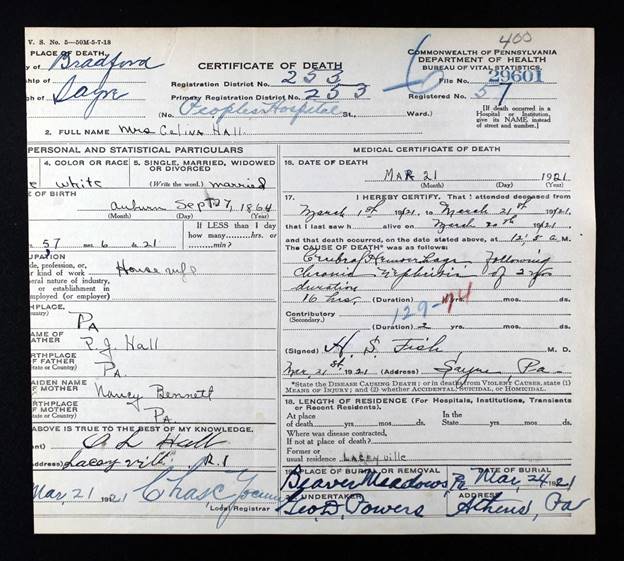 V. S. No. 5—50M-5-7-18
400
PLACE OF DEATH,
y of Bradford
CERTIFICATE OF DEATH
COMMONWEALTH OF PENNSYLVANIA
DEPARTMENT OF HEALTH
BUREAU OF VITAL STATISTICS.
nship of
Registration District No. 253
6
File No. 29601
gh of Sayre
Primary Registration District No. 253
Registered No. 57
(No. Peoples Hospital St., Ward.)
[If death occurred in a Hospital or Institution, give its NAME instead of street and number.]
2. FULL NAME Mrs Celina Hall
PERSONAL AND STATISTICAL PARTICULARS
MEDICAL CERTIFICATE OF DEATH
4. COLOR OR RACE
5. SINGLE, MARRIED, WIDOWED OR DIVORCED
(Write the word.)
white
married
16. DATE OF DEATH
MAR 21 1921
(Month) (Day) (Year)
E OF BIRTH
Auburn Sept 27, 1864
(Month) (Day) (Year)
17. I HEREBY CERTIFY, That I attended deceased from
March 1st 1921, to March 21st 1921,
that I last saw h alive on March 20th 1921.
and that death occurred, on the date stated above, at
M.
The CAUSE OF DEATH* was as follows:
If LESS than 1 day how many....hrs. or ....min.?
57 6 21
Cerebral Hemorrhage following
Chronic Nephritis of 2 yrs
duration
16 hrs. (Duration) yrs. mos. ds.
UPATION
de, profession, or,
r kind of work
Housewife
eral nature of industry,
or establishment in
mployed (or employer)
THPLACE,
te or Country)
Pa
Contributory
(Secondary.)
129-
(Duration) 2 yrs. mos. ds.
NAME OF FATHER
P.J. Hall
(Signed) H. S. Fish M. D.
Mar. 21st 1921 Sayre, Pa.
BIRTHPLACE OF FATHER
(State or Country)
Pa
*State the DISEASE CAUSING DEATH; or in deaths from VIOLENT CAUSES, state (1) MEANS OF INJURY; and (2) whether ACCIDENTAL, SUICIDAL, or HOMICIDAL.
MAIDEN NAME OF MOTHER
Nancy Bennett
BIRTHPLACE OF MOTHER
(State or Country)
Pa
18. LENGTH OF RESIDENCE (For Hospitals, Institutions, Transients or Recent Residents).
At place of death yrs. mos. ds.
In the State yrs. mos. ds.
Where was disease contracted,
If not at place of death?
Former or usual residence Laceyville
ABOVE IS TRUE TO THE BEST OF MY KNOWLEDGE.
ant) A L Hall
(Address) Laceyville R.1
19. PLACE OF BURIAL OR REMOVAL
Beaver Meadows Pa
DATE OF BURIAL
Mar, 24 1921
Mar, 21 1921
Chas C Yocum
Local Registrar
20. UNDERTAKER
Geo. D. Powers
ADDRESS
Athens, Pa